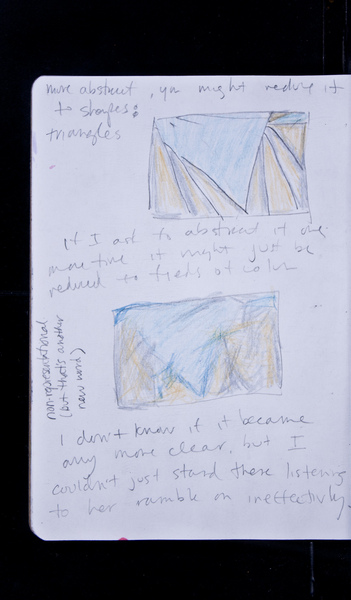 more abstract, you might reduce it
to shapes:
triangles
If I ask to abstract it one
more time it might just be
reduced to fields of color
non-representational
(but that's another
new word)
I don't know if it became
any more clear, but I
couldn't just stand there listening
to her ramble on ineffectively.